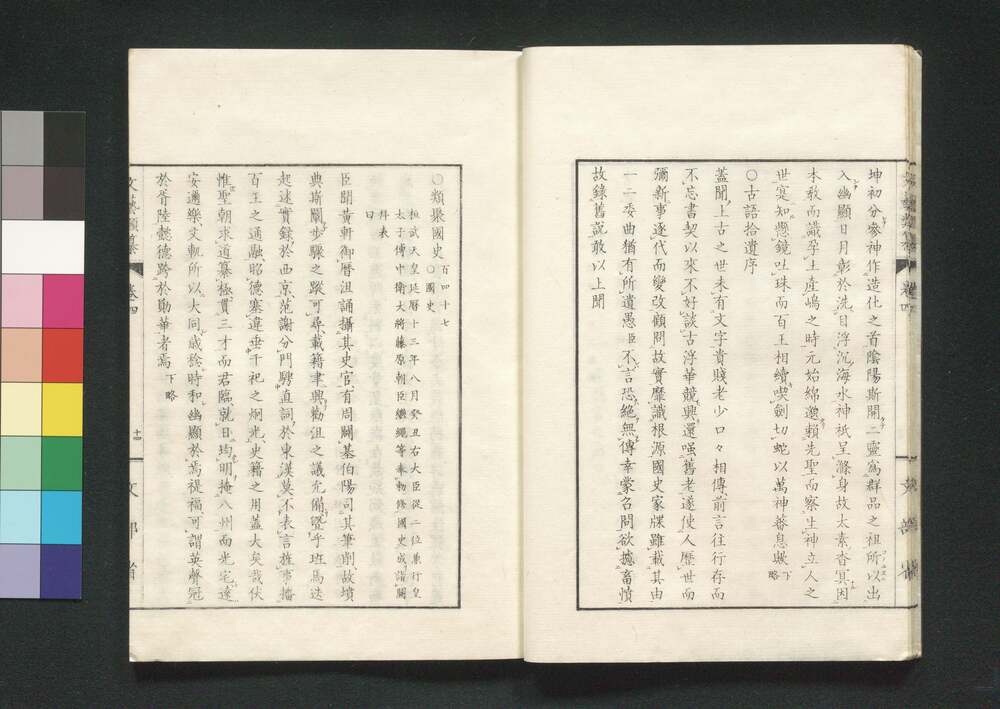 坤初分參神作造化之首陰陽斯開二靈爲群品之祖所以出
入幽顯日月彰於洗目浮沉海水神祇呈滌身故太素杳冥因
本教而識孕土產嶋之時元始綿邈賴先聖而察生神立人之
世寔知懸鏡吐珠而百王相續喫劍切蛇以萬神蕃息歟下略
○古語拾遺序
蓋聞上古之世未有文字貴賤老少口々相傳前言往行存而
不忘書契以來不好談古浮華競興還嗤舊老遂使人歷世而
彌新事逐代而變改顧問故實靡識根源國史家牒雖載其由
一二委曲猶有所遺愚臣不言恐絕無傳幸蒙召問欲攄畜憤
故錄舊說敢以上聞
○類聚國史百四十七○國史
桓武天皇延曆十三年八月癸丑右大臣從二位兼行皇
太子傅中衛大將藤原朝臣繼繩等奉勅修國史成詣闕
拜表
曰
臣聞黃軒御曆沮誦攝其史官有周闢基伯陽司其筆削故墳
典斯闡步驟之蹤可尋載籍聿興勸沮之議允備曁乎班馬迭
起述實錄於西京范謝分門騁直詞於東漢莫不表言旌事播
百王之通猷昭德塞違垂千祀之炯光史籍之用蓋大矣哉伏
惟聖朝求道纂極貫三才而君臨就日均明掩八州而光宅遠
安邇樂文軌所以大同歲稔時和幽顯於焉禔福可謂英聲冠
於胥陸懿德跨於勛華者焉下略
文藝類纂
卷四
十四
文部省